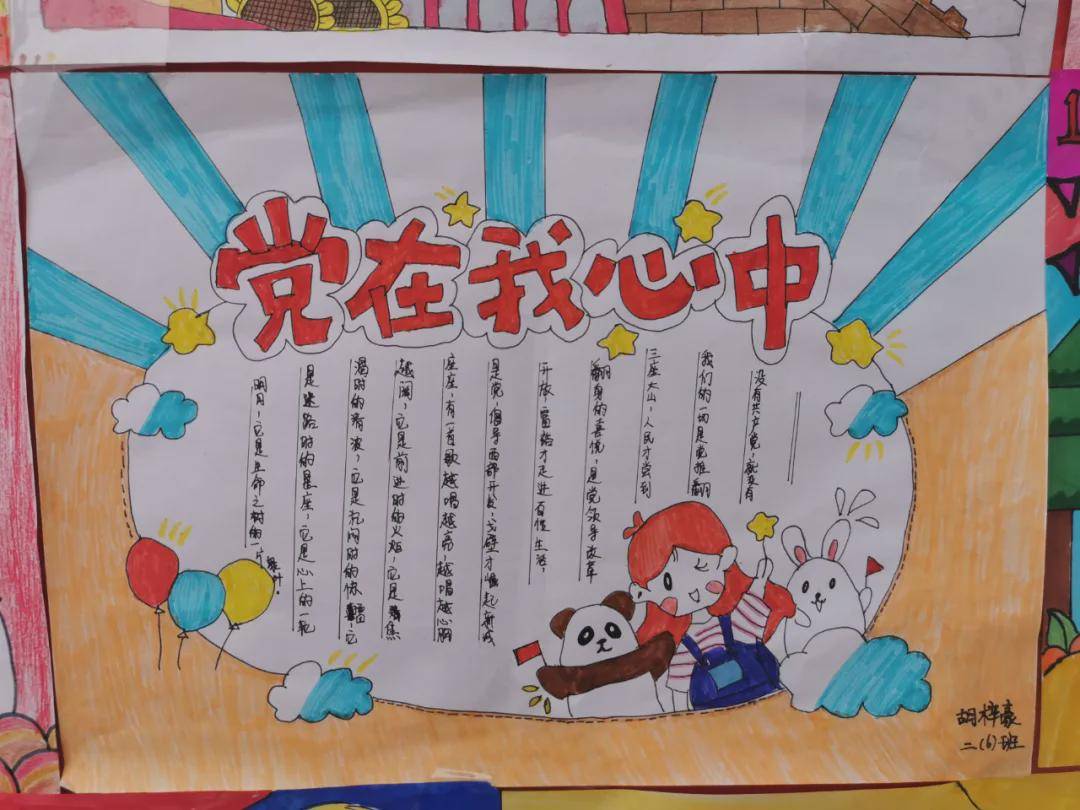 党在我心中
没有共产党，就没有
我们的一切是党推翻
三座大山，人民才尝到
翻身的喜悦，是党领导改革
开放，富裕才走进百姓生活，
是党，倡导西部开发，戈壁才崛起新城
座座，有一首歌越唱越亮，越唱越心胸
越阔，它是前进时的火焰，它是焦
渴时的清波，它是时的，它
是迷路时的星座，它是心上的一轮
明月，它是生命之树的一片绿叶.
胡梓豪
二(6)班
1